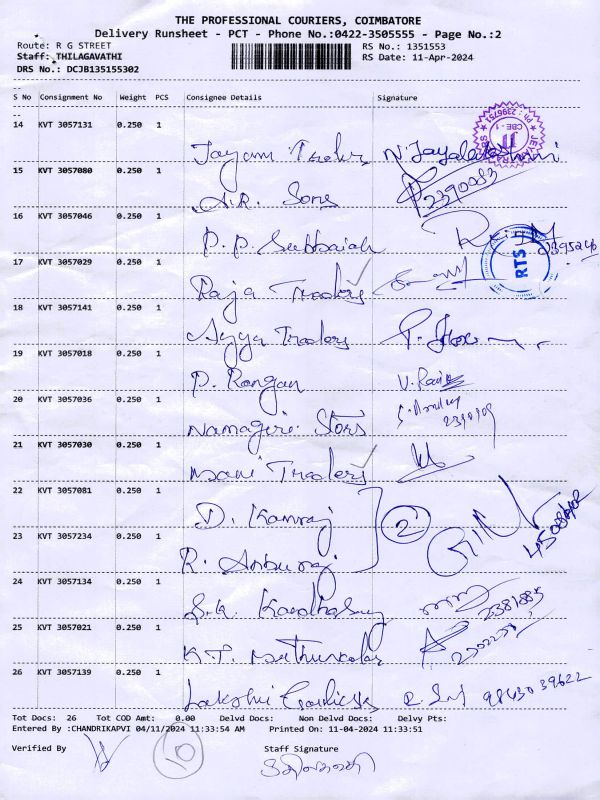 THE PROFESSIONAL COURIERS, COIMBATORE
Delivery Runsheet - PCT - Phone No.:0422-3505555 - Page No.:2
Route: R G STREET RS No.: 1351553
Staff: THILAGAVATHI RS Date: 11-Apr-2024
DRS No.: DCJB135155302
S No Consignment No Weight PCS Consignee Details Signature
14 KVT 3057131 0.250 1 N. Jayalakshmi
15 KVT 3057080 0.250 1 A.R. Sons 2390083
16 KVT 3057046 0.250 1 P.P. Subbaiah
RTS
17 KVT 3057029 0.250 1 Raja Traders
18 KVT 3057141 0.250 1 Ayya Traders
19 KVT 3057018 0.250 1 P. Rangan
20 KVT 3057036 0.250 1 Namagiri Stors
21 KVT 3057030 0.250 1 Mani Traders
22 KVT 3057081 0.250 1 D. Kamraj 2
23 KVT 3057234 0.250 1 R. Anburaj
24 KVT 3057134 0.250 1 S.K. Kandhasamy 2381885
25 KVT 3057021 0.250 1 K.P. Muthukalai
26 KVT 3057139 0.250 1 Lakshmi 98430 39622
Tot Docs: 26 Tot COD Amt: 0.00 Delvd Docs: Non Delvd Docs: Delvy Pts:
Entered By :CHANDRIKAPVI 04/11/2024 11:33:54 AM Printed On: 11-04-2024 11:33:51
Verified By 10 Staff Signature